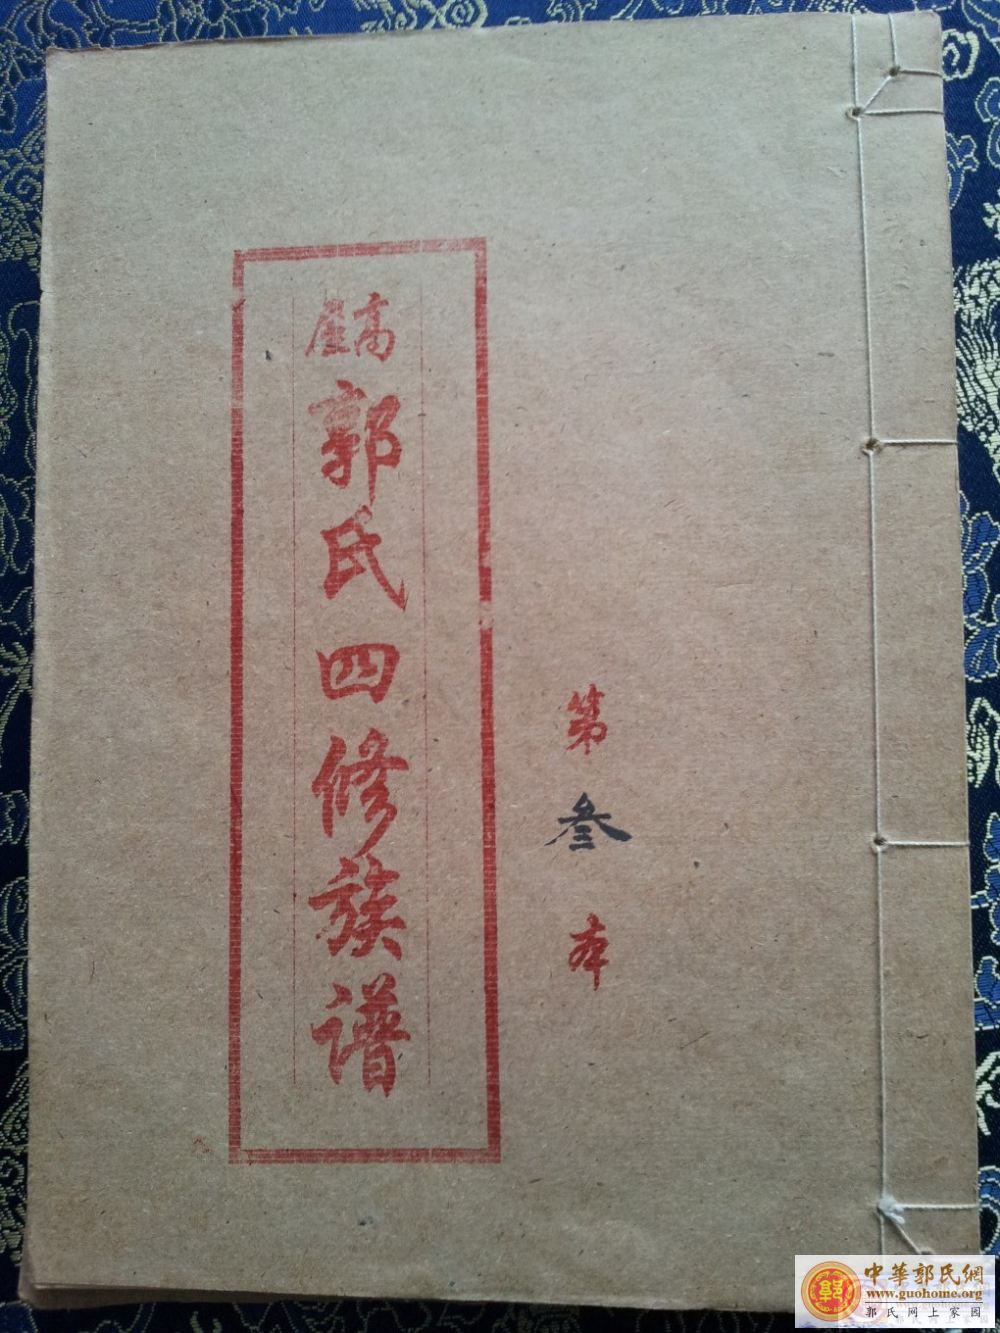 高屋
郭氏四修族谱
第叁本
中華郭氏網
www.guohome.org
郭氏网上家园